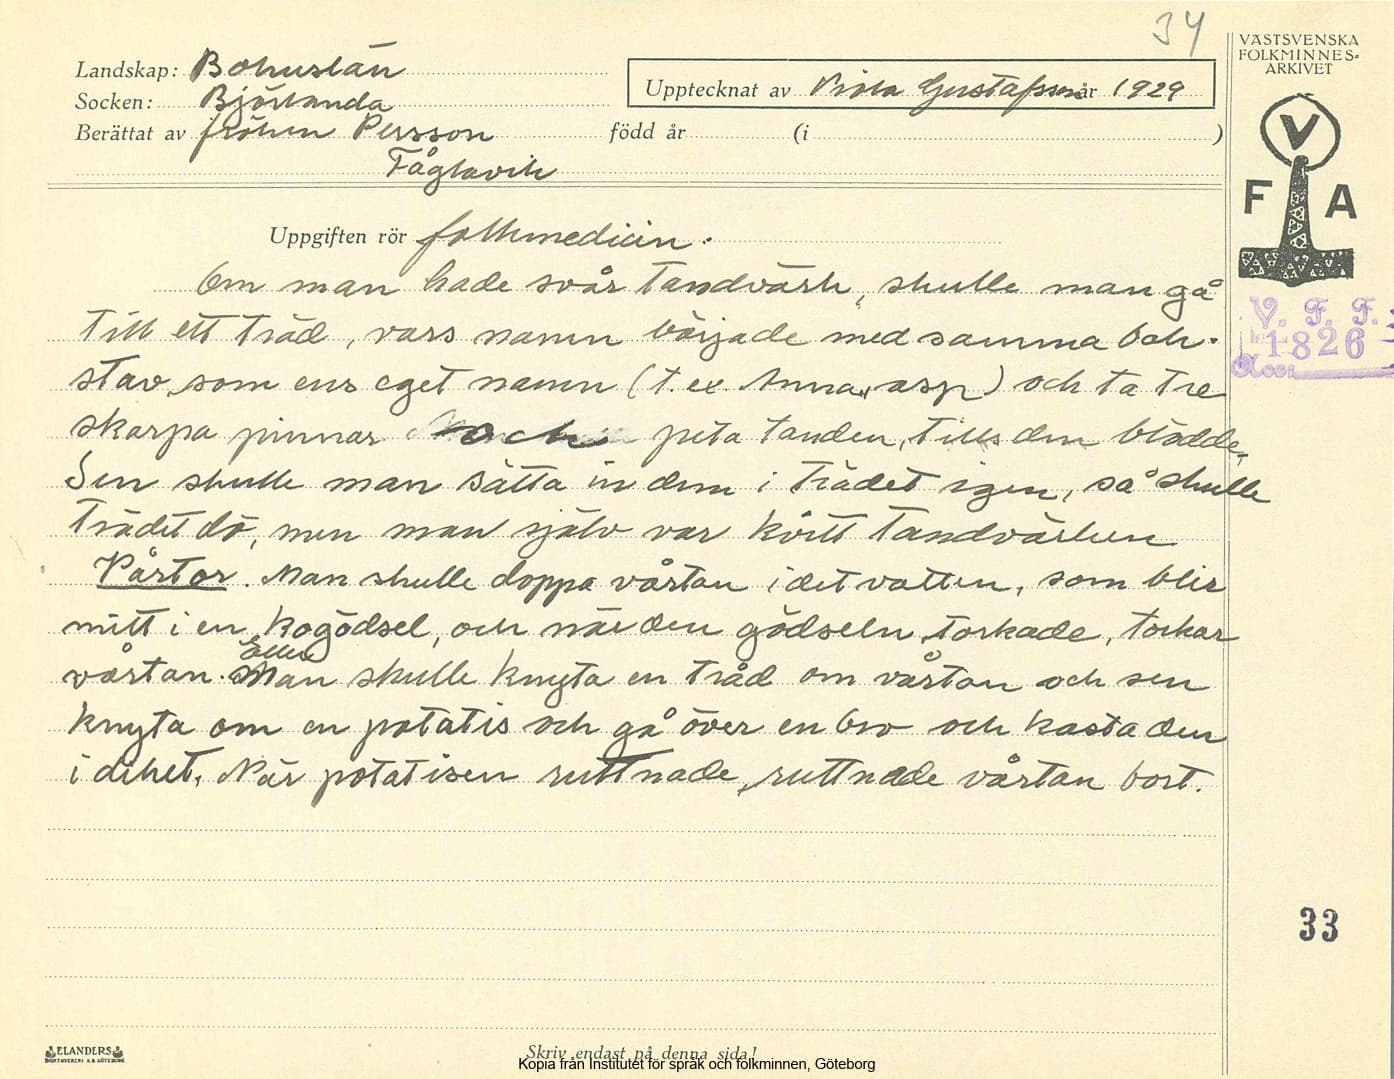 34
VÄSTSVENSKA
FOLKMINNES-
ARKIVET
Landskap: Bohuslän
Socken: Björlanda
Upptecknat av Viola Gustafsson år 1929
Berättat av fröken Persson född år (i )
Fåglavik
V
F A
Uppgiften rör folkmedicin.
Om man hade svår tandvärk, skulle man gå
till ett träd, vars namn började med samma bok-
stav som ens eget namn (t.ex. Anna, asp) och ta tre
skarpa pinnar och peta tanden, tills den blödde.
Sen skulle man sätta in dem i trädet igen, så skulle
trädet dö, men man själv var kvitt tandvärken
Vårtor. Man skulle doppa vårtan i det vatten, som blir
mitt i en kogödsel, och när den gödseln torkade, torkar
vårtan. Eller Man skulle knyta en tråd om vårtan och sen
knyta om en potatis och gå över en bro och kasta den
i diket. När potatisen ruttnade, ruttnade vårtan bort.
V. F. F.
1826
33
ELANDERS
BOKTRYCKERI A.B. GÖTEBORG
Skriv endast på denna sida!
Kopia från Institutet för språk och folkminnen, Göteborg